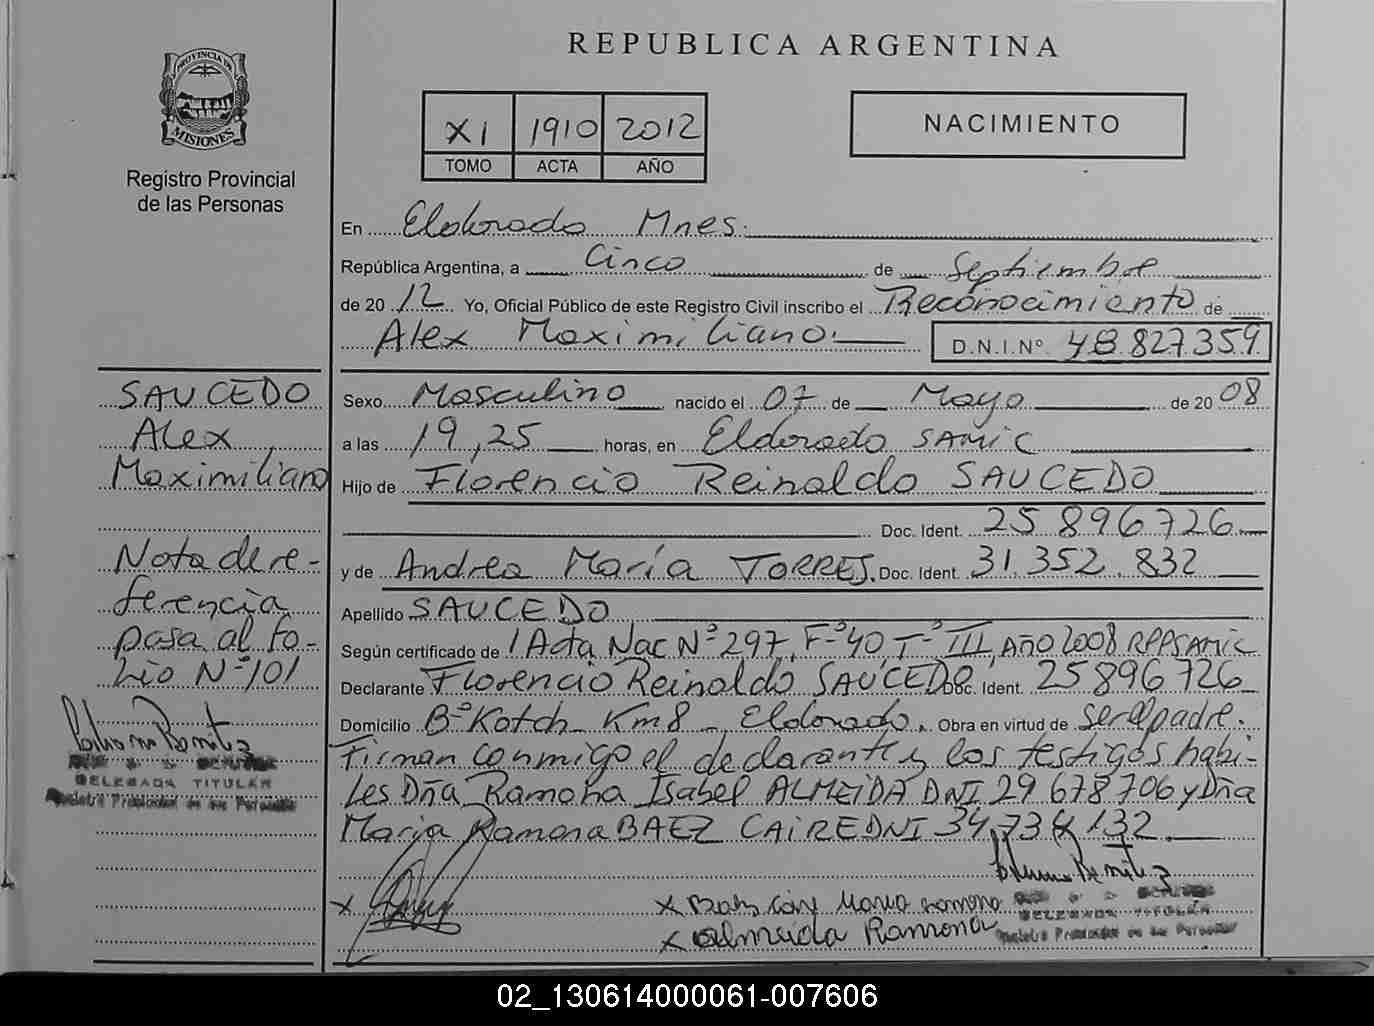 REPUBLICA ARGENTINA
PROVINCIA DE
MISIONES
Registro Provincial
de las Personas
XI 1910 2012
TOMO ACTA AÑO
NACIMIENTO
En Eldorado Mnes.
República Argentina, a Cinco de Septiembre
de 20 12 Yo, Oficial Público de este Registro Civil inscribo el Reconocimiento de
Alex Maximiliano. D.N.I.Nº 48 827.359
SAUCEDO
Alex
Maximiliano
Nota de re-
ferencia
pasa al fo-
lio Nº 101
DELEGADA TITULAR
Sexo Masculino nacido el 07 de Mayo de 20 08
a las 19,25 horas, en Eldorado SAMIC
Hijo de Florencio Reinaldo SAUCEDO
Doc. Ident. 25 896 726
y de Andrea María TORRES. Doc. Ident. 31.352.832
Apellido SAUCEDO
Según certificado de 1 Acta Nac Nº 297, Fº 40 Tº III, Año 2008 RPPSAMIC
Declarante Florencio Reinaldo SAUCEDO Doc. Ident. 25 896 726
Domicilio Bº Kotch Km 8 Eldorado. Obra en virtud de ser el padre.
Firman conmigo el declarante y los testigos hábi-
les Dña Ramona Isabel ALMEIDA DNI 29 678 706 y Dña
Maria Ramona BAEZ CAIRE DNI 34.734.132
x Baez Maria Ramona
x Almeida Ramona
DELEGADA TITULAR
02_130614000061-007606